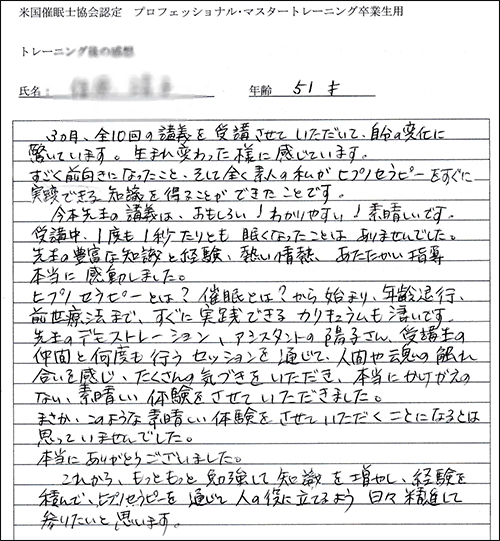 米国催眠士協会認定 プロフェッショナル・マスタートレーニング卒業生用
トレーニング後の感想
氏名： 年齢 51才
3ヵ月、全10回の講義を受講させていただいて、自分の変化に
驚いています。生まれ変わった様に感じています。
すごく前向きになったこと、そして全く素人の私がヒプノセラピーをすぐに
実践できる知識を得ることができたことです。
今本先生の講義は、おもしろい！わかりやすい！素晴しいです。
受講中、1度も1秒たりとも眠くなったことはありませんでした。
先生の豊富な知識と経験、熱い情熱、あたたかい指導
本当に感動しました。
ヒプノセラピーとは？催眠とは？から始まり、年齢退行、
前世療法まで、すぐに実践できるカリキュラムも凄いです。
先生のデモストレーション、アシスタントの陽子さん、受講生の
仲間と何度も行うセッションを通じて、人間や魂の触れ
合いを感じ、たくさんの気づきをいただき、本当にかけがえの
ない、素晴しい体験をさせていただきました。
まさか、このような素晴しい体験をさせていただくことになるとは
思っていませんでした。
本当にありがとうございました。
これから、もっともっと勉強して知識を増やし、経験を
積んで、ヒプノセラピーを通じて人の役に立てるよう日々精進して
参りたいと思います。